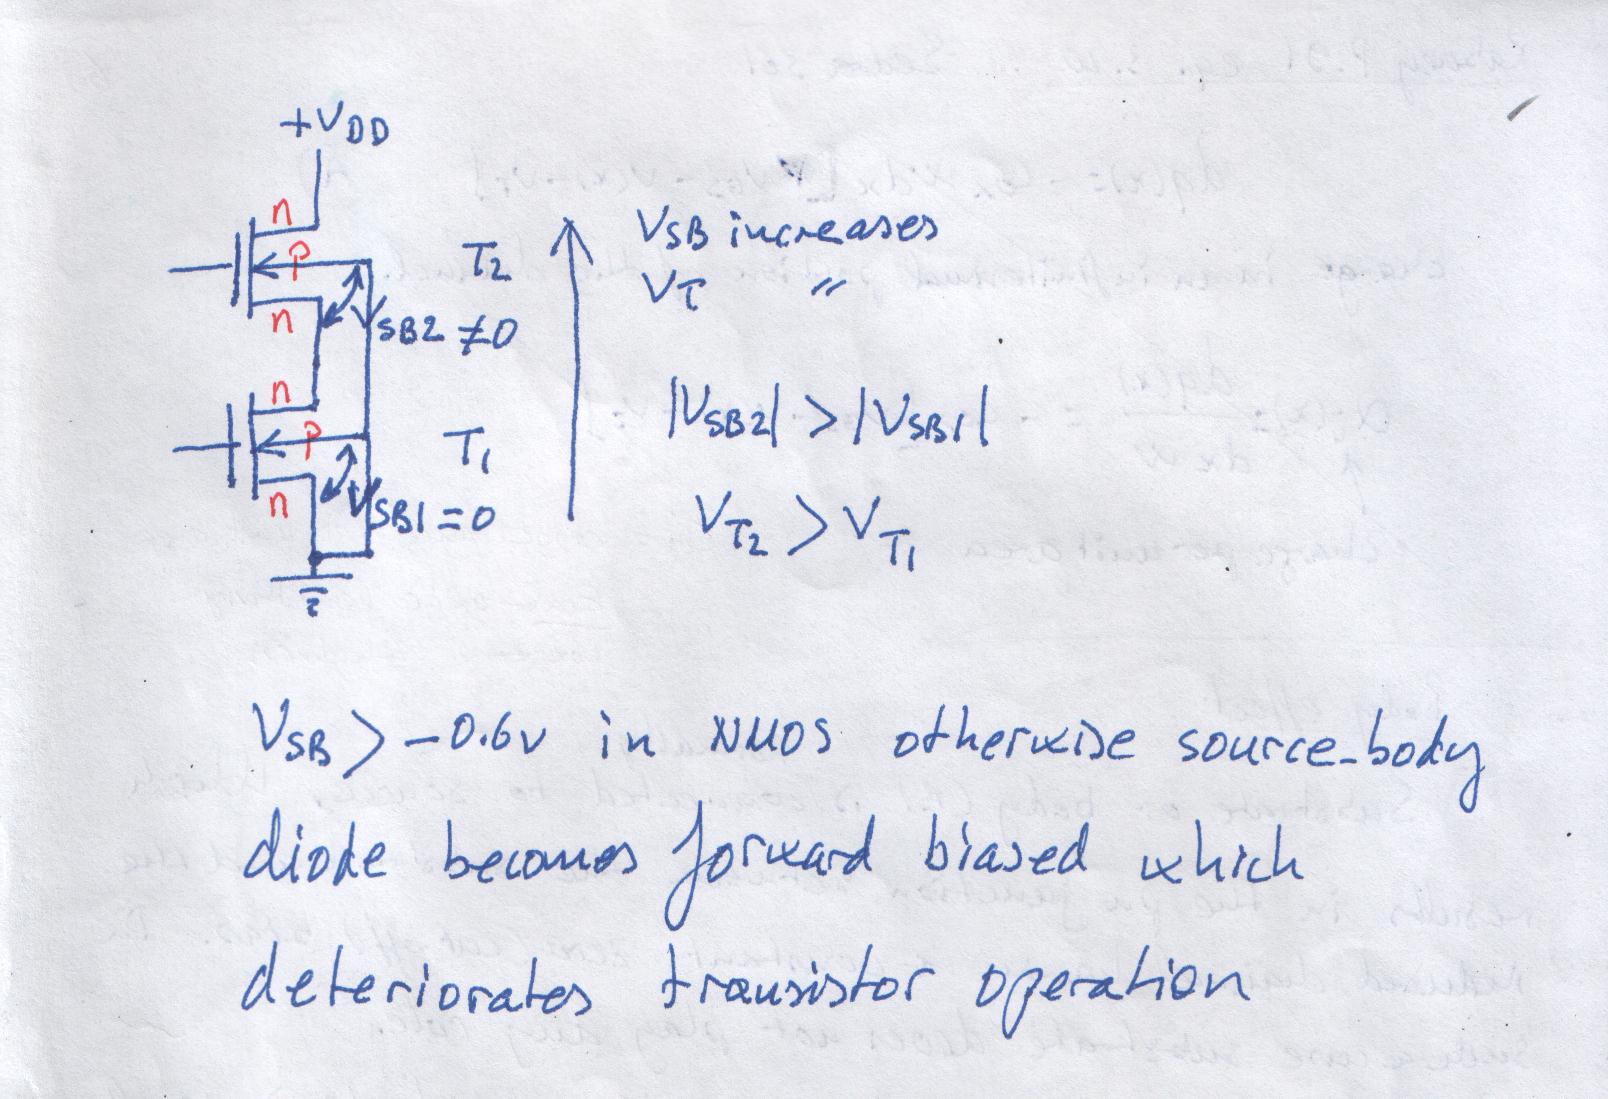 +VDD
n
p
n
T2
VSB2 ≠0
n
p
n
T1
VSB1=0
VSB increases
VT "
|VSB2| > |VSB1|
VT2 > VT1
VSB > -0.6v in NMOS otherwise source-body
diode becomes forward biased which
deteriorates transistor operation